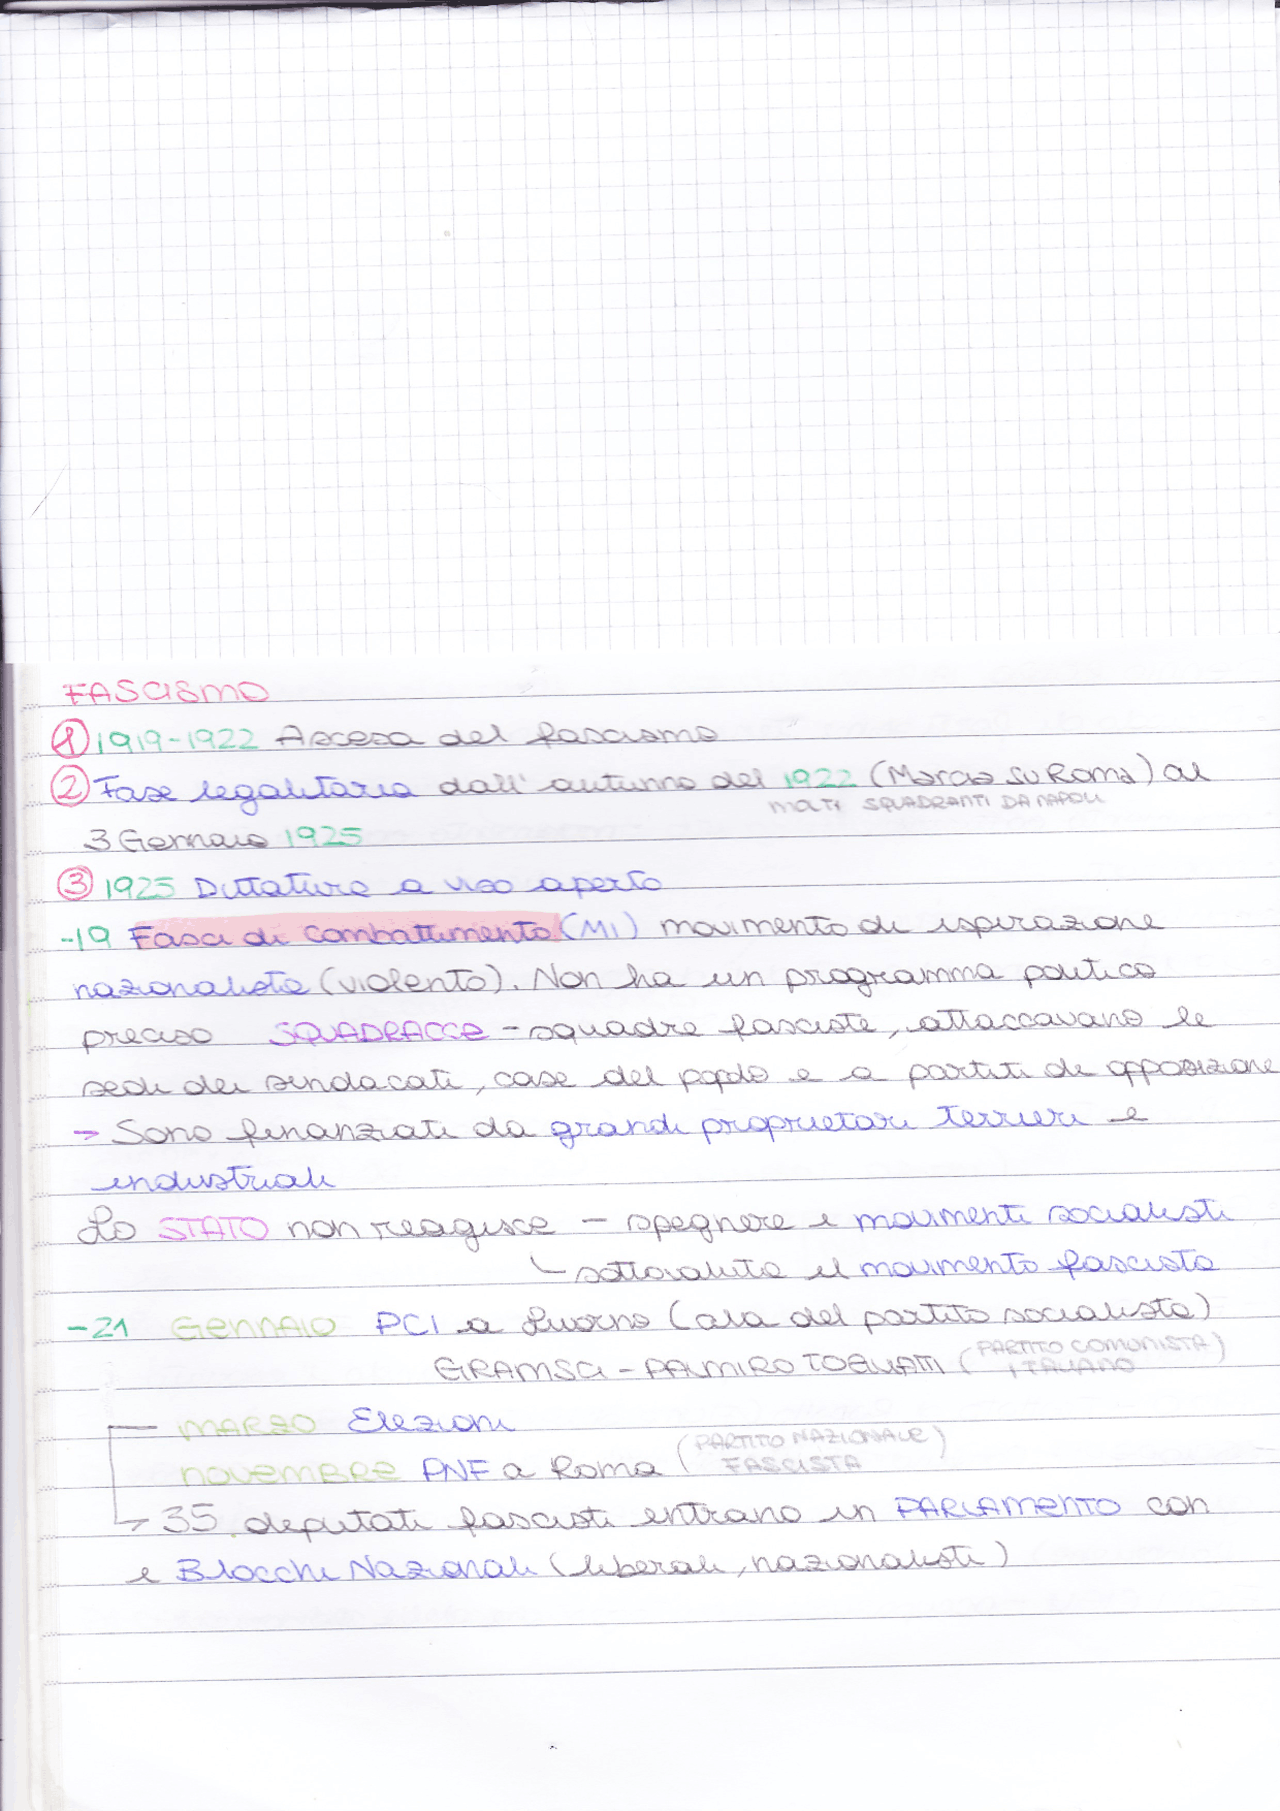 FASCISMO
① 1919-1922 Ascesa del fascismo
② Fase legalitaria dall'autunno del 1922 (Marcia su Roma) al
SQUADRANTI DA NAPOLI
3 Gennaio 1925
③ 1925 Dittatura a viso aperto
-19 Fasci di combattimento (MI) movimento di ispirazione
nazionalista (violento). Non ha un programma politico
preciso SQUADRACCE - squadre fasciste, attaccavano le
sedi dei sindacati, case del popolo e a partiti di opposizione
→ Sono finanziati da grandi proprietari terrieri e
industriali
Lo STATO non reagisce - spegnere i movimenti socialisti
sottovaluta il movimento fascista
-21 GENNAIO PCI a Livorno (ala del partito socialista)
GRAMSCI - PALMIRO TOGLIATTI (PARTITO COMUNISTA
ITALIANO)
MARZO Elezioni
NOVEMBRE PNF a Roma (PARTITO NAZIONALE
FASCISTA)
→ 35 deputati fascisti entrano in PARLAMENTO con
i Blocchi Nazionali (liberali, nazionalisti)